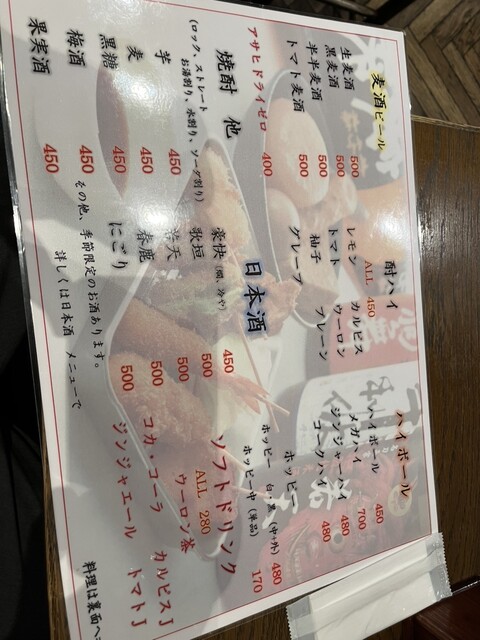 麦酒ビール
生麦酒 500
黒麦酒 500
半半麦酒 500
トマト麦酒 500
アサヒドライゼロ 400
焼酎 他
(ロック、ストレート
お湯割り、水割り、ソーダ割り)
芋 450
麦 450
黒糖 450
梅酒 450
果実酒 450
酎ハイ
ALL 450
レモン カルピス
トマト ウーロン
柚子 プレーン
グレープ
日本酒
豪快(燗、冷や) 450
歌垣 500
500
春鹿 500
にごり 500
その他、季節限定のお酒あります。
詳しくは日本酒 メニューで
ハイボール
ハイボール 450
メガハイ 700
ジンジャーハイ 480
コークハイ 480
ホッピー
ホッピー 白 黒 (中+外) 480
ホッピー中 (単品) 170
ソフトドリンク
ALL 280
ウーロン茶
コカ・コーラ カルピスJ
ジンジャエール トマトJ
料理は裏面へ